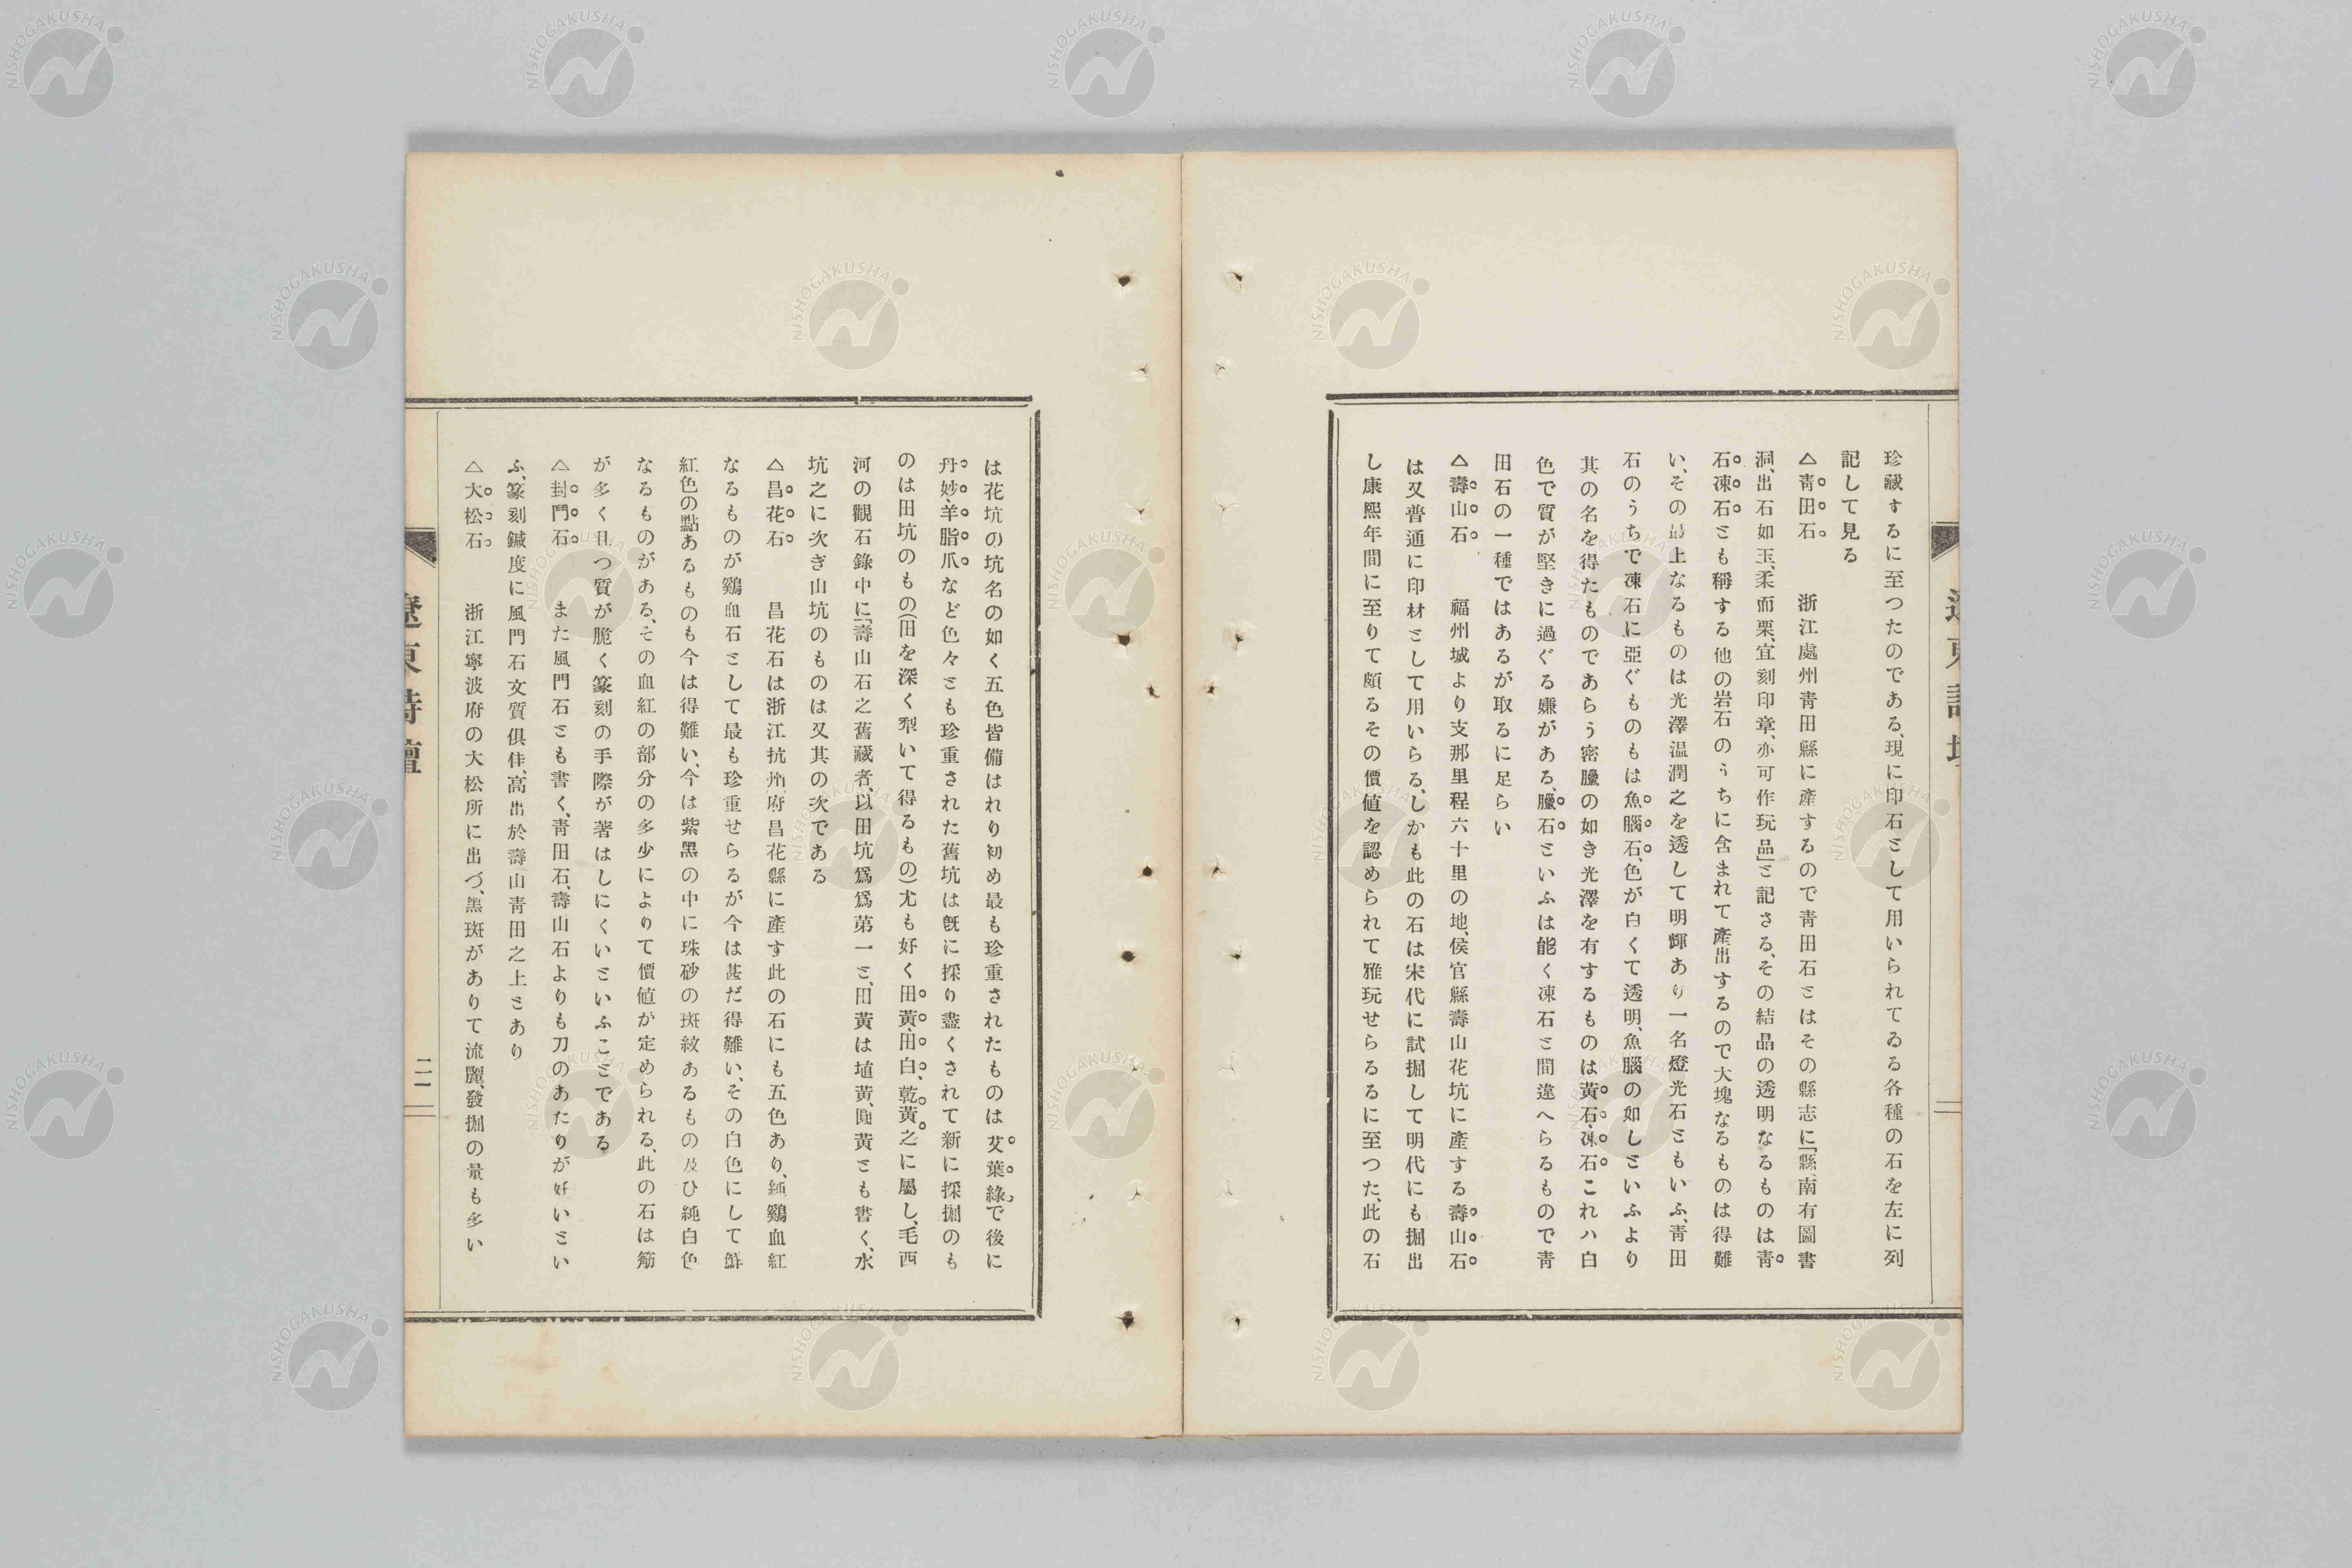 珍藏するに至つたのである、現に印石として用いられてゐる各種の石を左に列
記して見る
△青田石　浙江處州青田縣に產するので青田石とはその縣志に「縣南有圖書
洞、出石如玉、柔而栗、宜刻印章、亦可作玩品」と記さる、その結晶の透明なるものは青
石凍石とも稱する他の岩石のうちに含まれて產出するので大塊なるものは得難
い、その最上なるものは光澤温潤之を透して明輝あり一名燈光石ともいふ、青田
石のうちで凍石に亞ぐものもは魚腦石、色が白くて透明、魚腦の如しといふより
其の名を得たものであらう密臘の如き光澤を有するものは黄石、凍石これハ白
色で質が堅きに過ぐる嫌がある、臘石といふは能く凍石と間違へらるもので青
田石の一種ではあるが取るに足らい
△壽山石　福州城より支那里程六十里の地、侯官縣壽山花坑に產する壽山石
は又普通に印材として用いらる、しかも此の石は宋代に試掘して明代にも掘出
し康熙年間に至りて頗るその價値を認められて雅玩せらるるに至つた、此の石
は花坑の坑名の如く五色皆備はれり初め最も珍重されたものは艾葉綠で後に
丹妙、羊脂爪など色々とも珍重された舊坑は既に採り盡くされて新に採掘のも
のは田坑のもの(田を深く犁いて得るもの)尤も好く田黃、田白、乾黃之に屬し、毛西
河の觀石錄中に「壽山石之舊藏者、以田坑爲爲第一と、田黄は埴黄、圓黄とも書く、水
坑之に次ぎ山坑のものは又其の次である
△昌花石　昌花石は浙江抗州府昌花縣に產す此の石にも五色あり、純鷄血紅
なるものが鷄血石として最も珍重せらるが今は甚だ得難い、その白色にして鮮
紅色の點あるものも今は得難い、今は紫黑の中に珠砂の斑紋あるもの及ひ純白色
なるものがある、その血紅の部分の多少によりて價値が定められる、此の石は筋
が多く且つ質が脆く篆刻の手際が著はしにくいといふことである
△封門石　また風門石とも書く、青田石、壽山石よりも刀のあたりが好いとい
ふ、篆刻鍼度に風門石文質俱佳、高出於壽山青田之上とあり
△大松石　浙江寧波府の大松所に出づ、黑斑がありて流麗、發掘の量も多い
遼東詩壇
二一
NISHOGAKUSHA